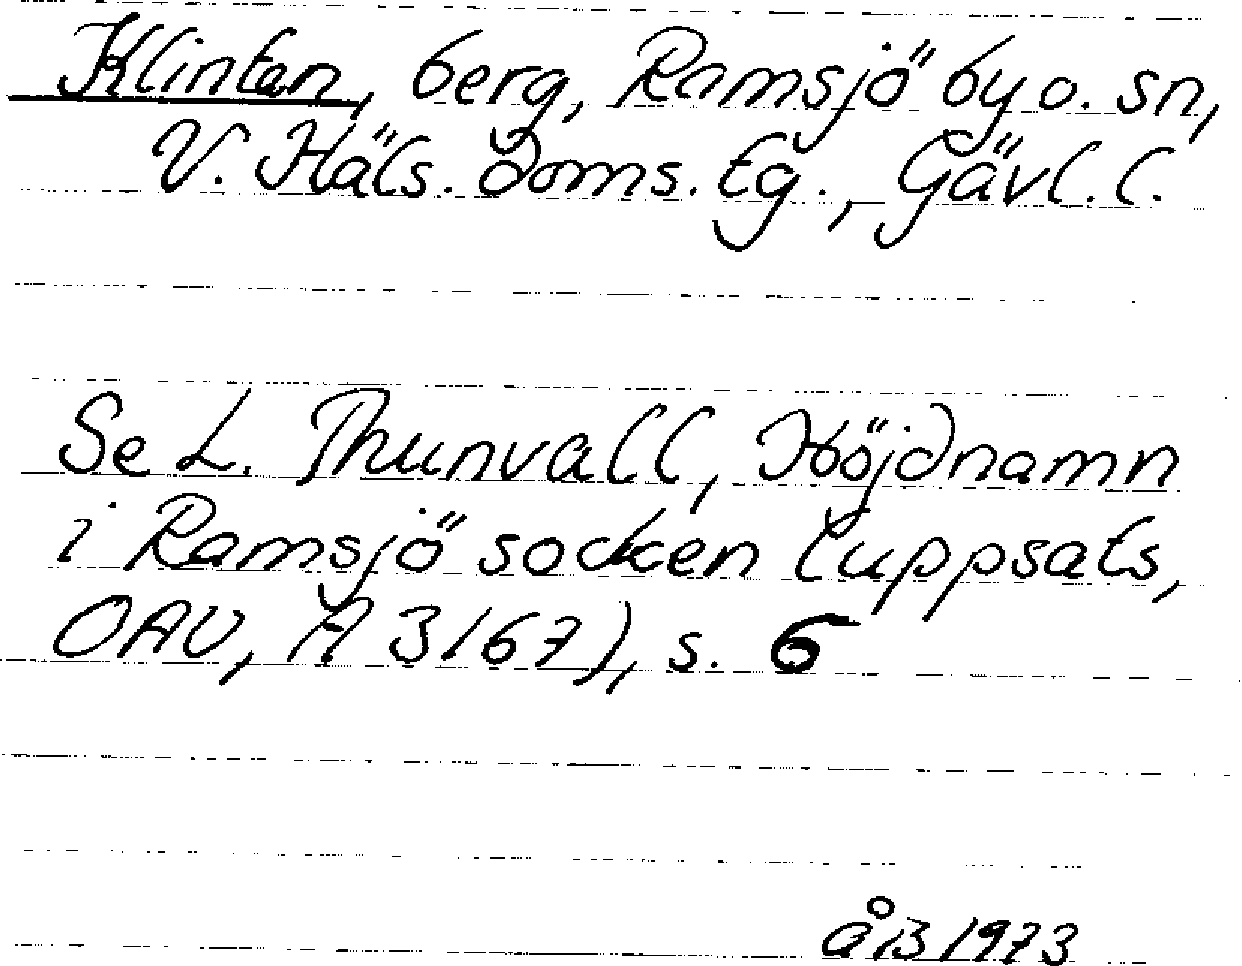 Klintan, berg, Ramsjö by o. sn,
V. Häls. doms. tg., Gävl. l.
Se L. Thunvall, Höjdnamn
i Ramsjö socken (uppsats,
OAU, A 3167), s. 6
åB 1973